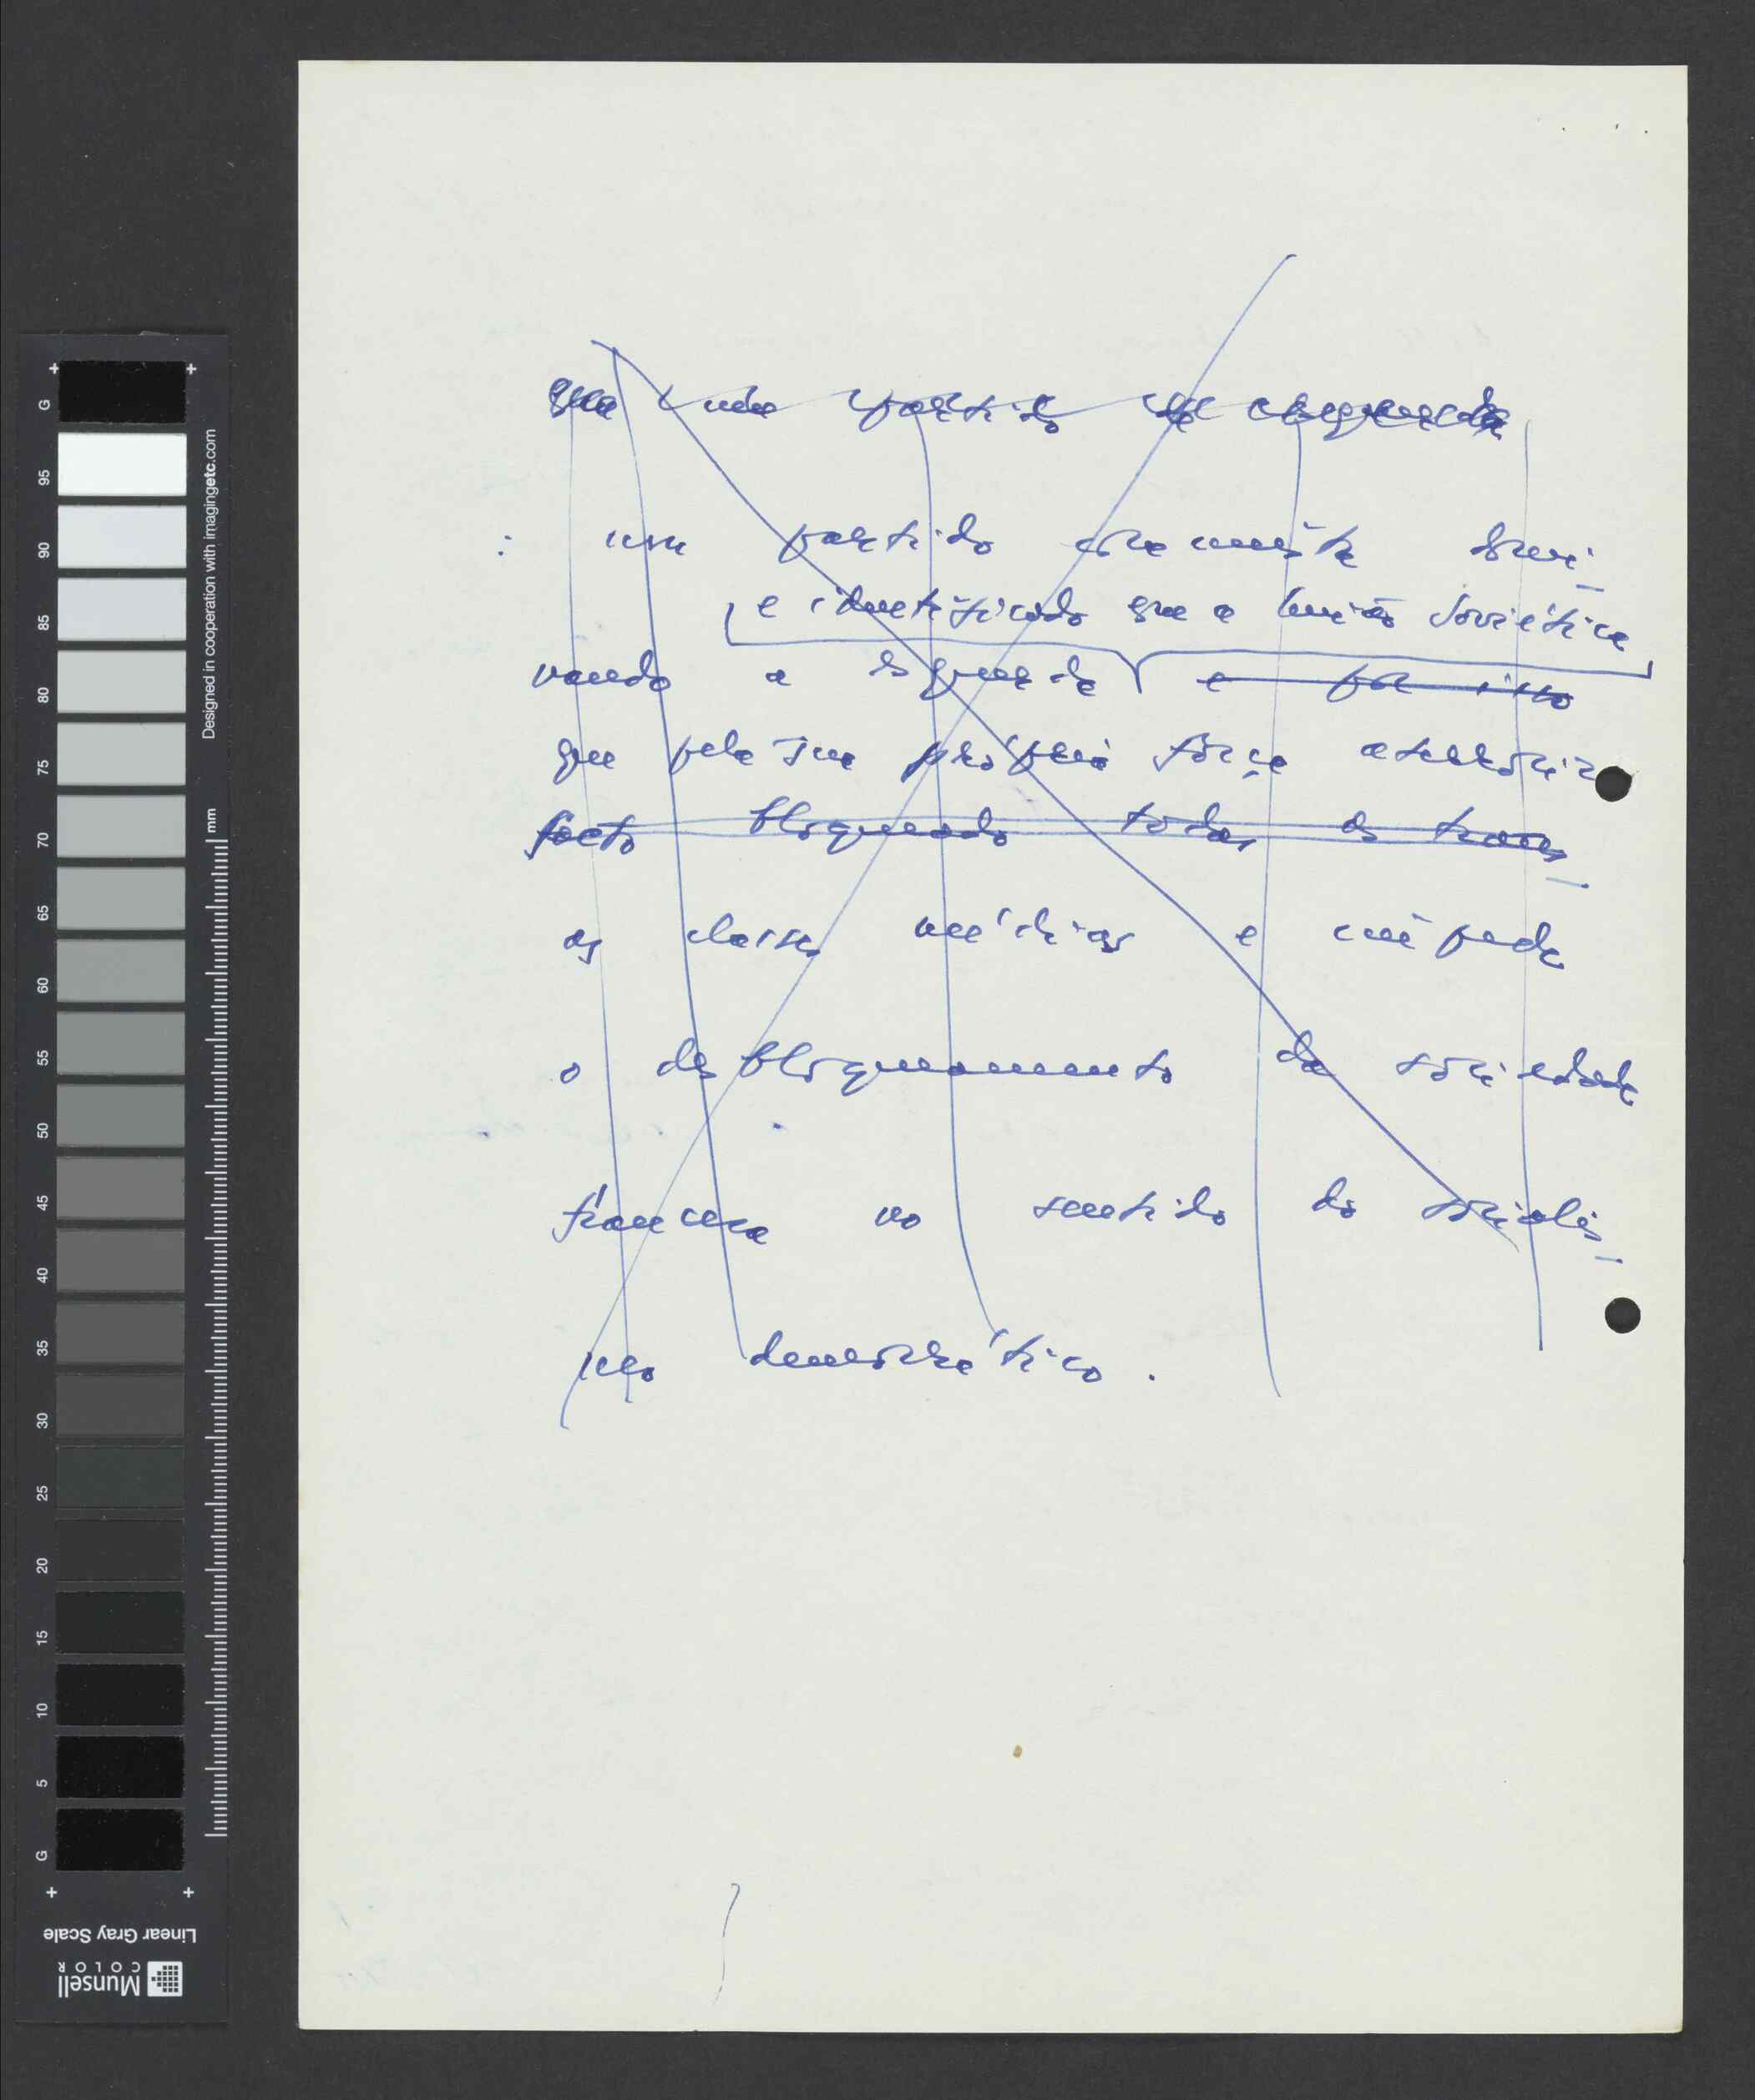 que um partido de esquerda
: um partido comunista domi-
e identificado que a União Soviética
nando a esquerda e por isso
que pela sua própria força aterroriza
facto bloqueado todas as trans-
as classes médias e impede
o desbloqueamento da sociedade
francesa no sentido do socialis-
mo democrático.
G 95 90 85 80 75 70 65 60 55 50 45 40 35 30 25 20 15 10 5 G
Designed in cooperation with imagingetc.com
mm
Linear Gray Scale
Munsell
COLOR